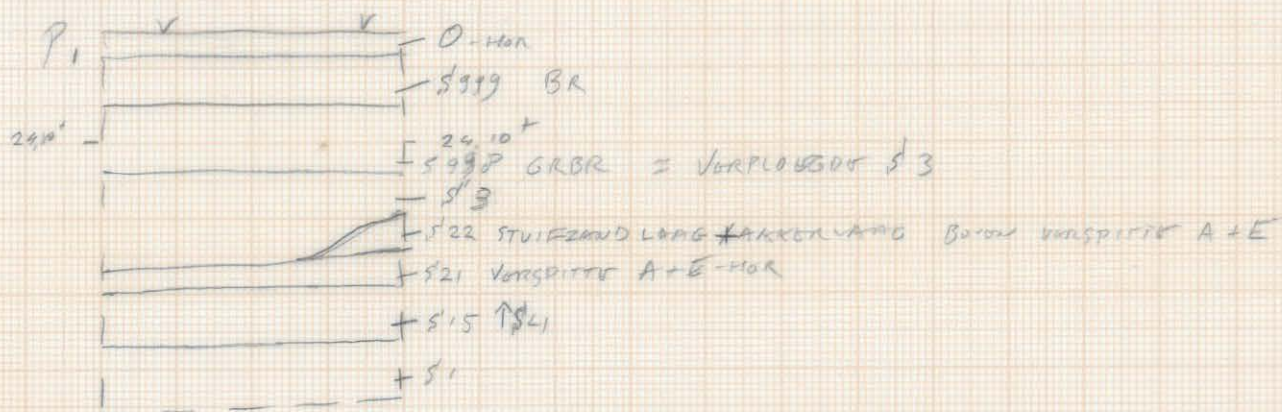 P1
O-HOR
S999 BR
24,10+
24,10+
S998 GRBR = VERPLOEGDE S3
S3
S22 STUIFZAND LAAG / AKKERLAAG BOVEN VERSPITTE A+E
S21 VERSPITTE A+E-HOR
S15 ↑S21
S1